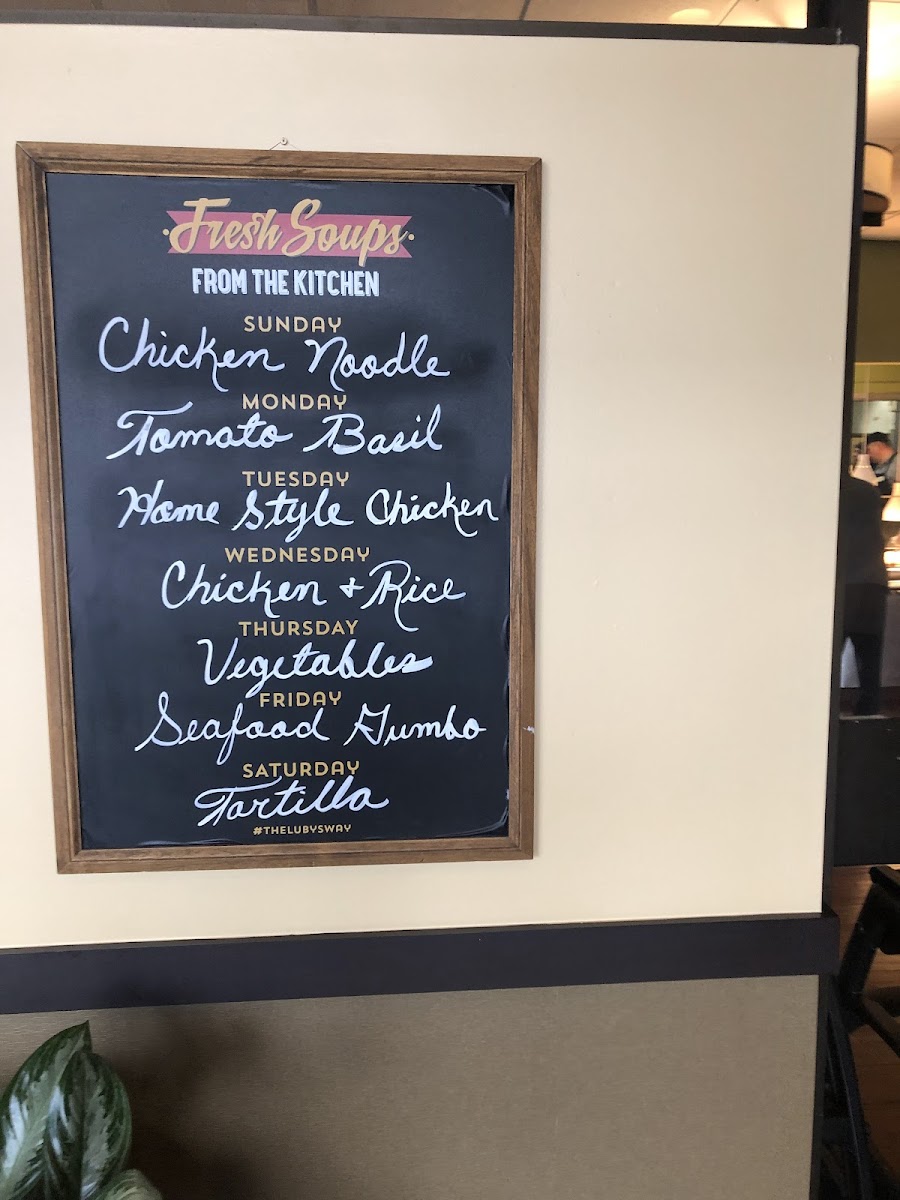 Fresh Soups
FROM THE KITCHEN
SUNDAY
Chicken Noodle
MONDAY
Tomato Basil
TUESDAY
Home Style Chicken
WEDNESDAY
Chicken + Rice
THURSDAY
Vegetables
FRIDAY
Seafood Gumbo
SATURDAY
Tortilla
#THELUBYSWAY